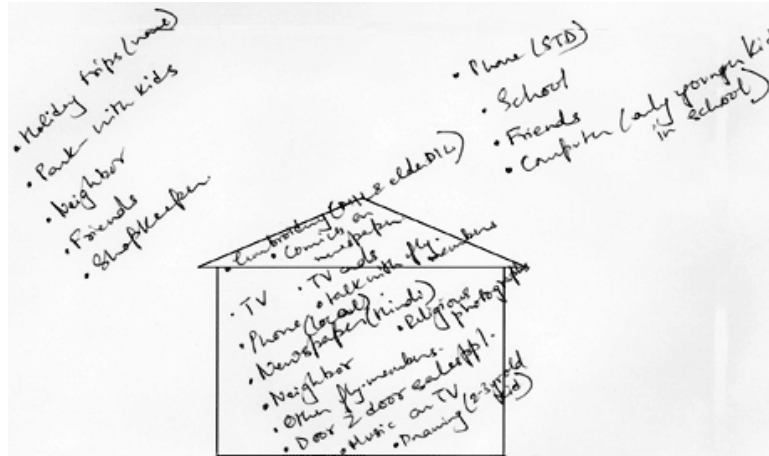 • Holiday trips (none)
• Park with kids
• Neighbor
• Friends
• Shopkeeper
• Phone (STD)
• School
• Friends
• Computer (only younger kid
in school)
• Embroiding ( & elder DIL)
• Comics on
newspaper
• TV
• TV ads
• talk with fly. members
• Phone (local)
• Newspaper (Hindi)
• Religious
photographs
• Neighbor
• Other fly. members.
• Door 2 door sales ppl.
• Music on TV
• Drawing (2-3 yr old
kid)